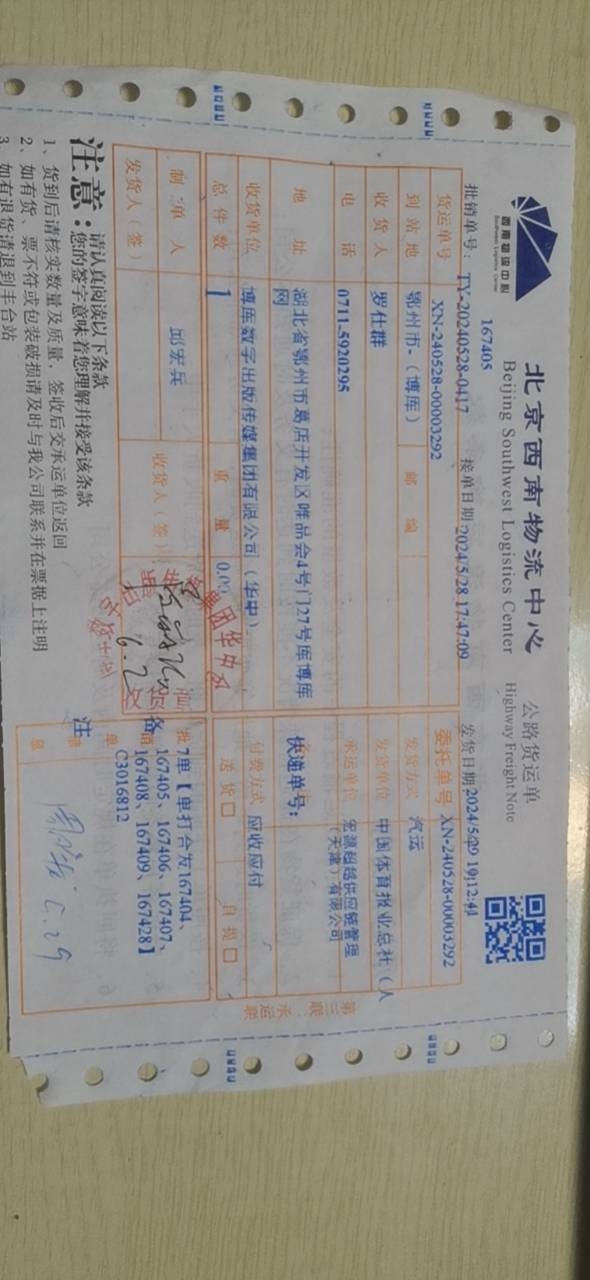 西南物流中心
Southwest Logistics Center
北京西南物流中心
Beijing Southwest Logistics Center
公路货运单
Highway Freight Note
167405
批销单号: TY-20240528-0417 接单日期:2024/5/28 17:47:09 发货日期:2024/5/29 10:12:41
货运单号 XN-240528-00003292 委托单号 XN-240528-00003292
到站地 鄂州市-（博库） 邮编 发货方式 汽运
收货人 罗仕群 发货单位 中国体育报业总社（人
电话 0711-5920295 承运单位 宏源超越供应链管理
（天津）有限公司
地址 湖北省鄂州市葛店开发区唯品会4号门27号库博库
网
快递单号:
收货单位 博库数字出版传媒集团有限公司（华中） 付费方式 应收应付
总件数 1 重量 0.00 送货□ 自提□
制单人 邱宏兵 收货人（签）
发货人（签）
6.2
备注
批销单 7单【单打合发167404、
167405、167406、167407、
167408、167409、167428】
C3016812
5.29
第三联:承运联
注意:
请认真阅读以下条款
您的签字意味着您理解并接受该条款
1、货到后请核实数量及质量，签收后交承运单位返回
2、如有货、票不符或包装破损请及时与我公司联系并在票据上注明
3、如有退货请退到丰台站